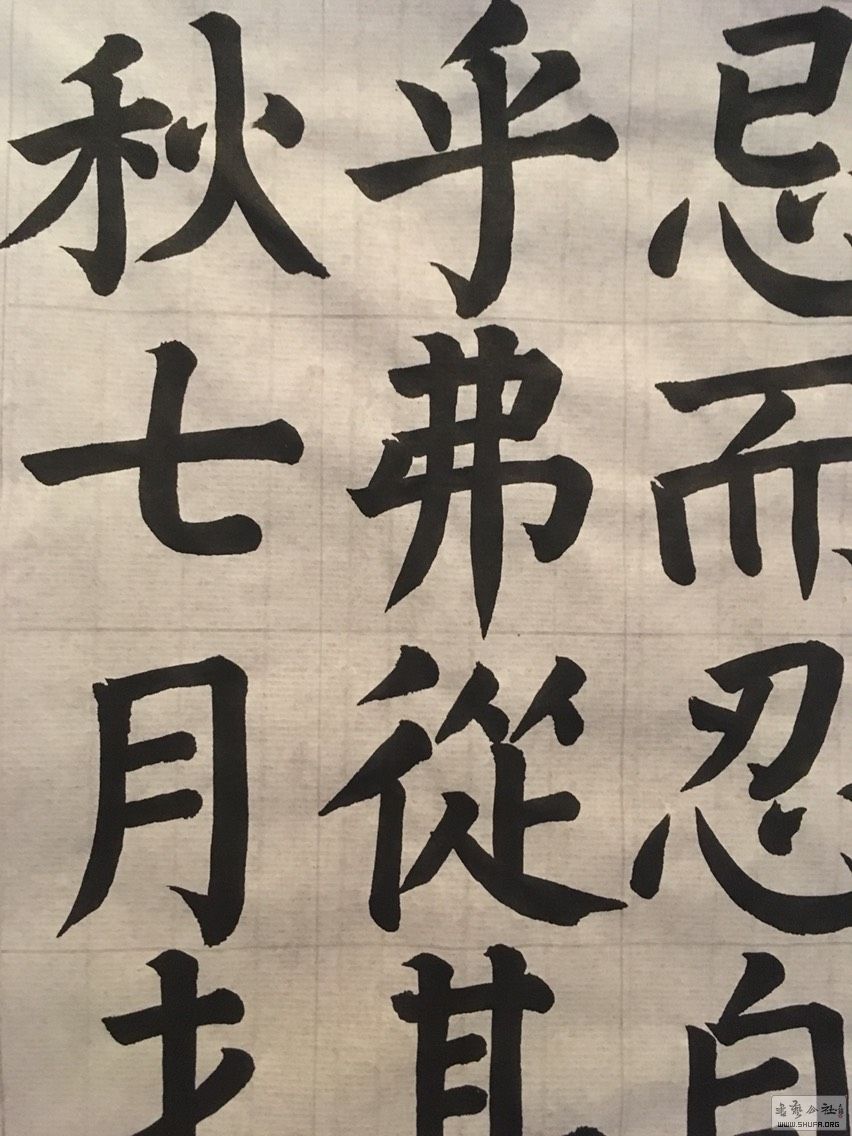 忌而忍
乎弗從其
秋七月
书艺公社
WWW.SHUFA.ORG